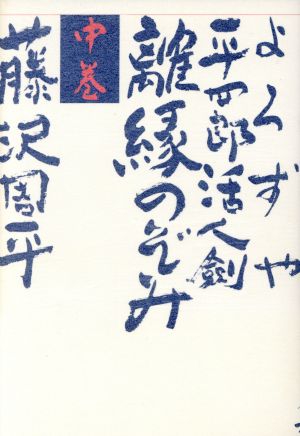 よろずや
平四郎活人劍
離縁のぞみ
中巻
藤沢周平